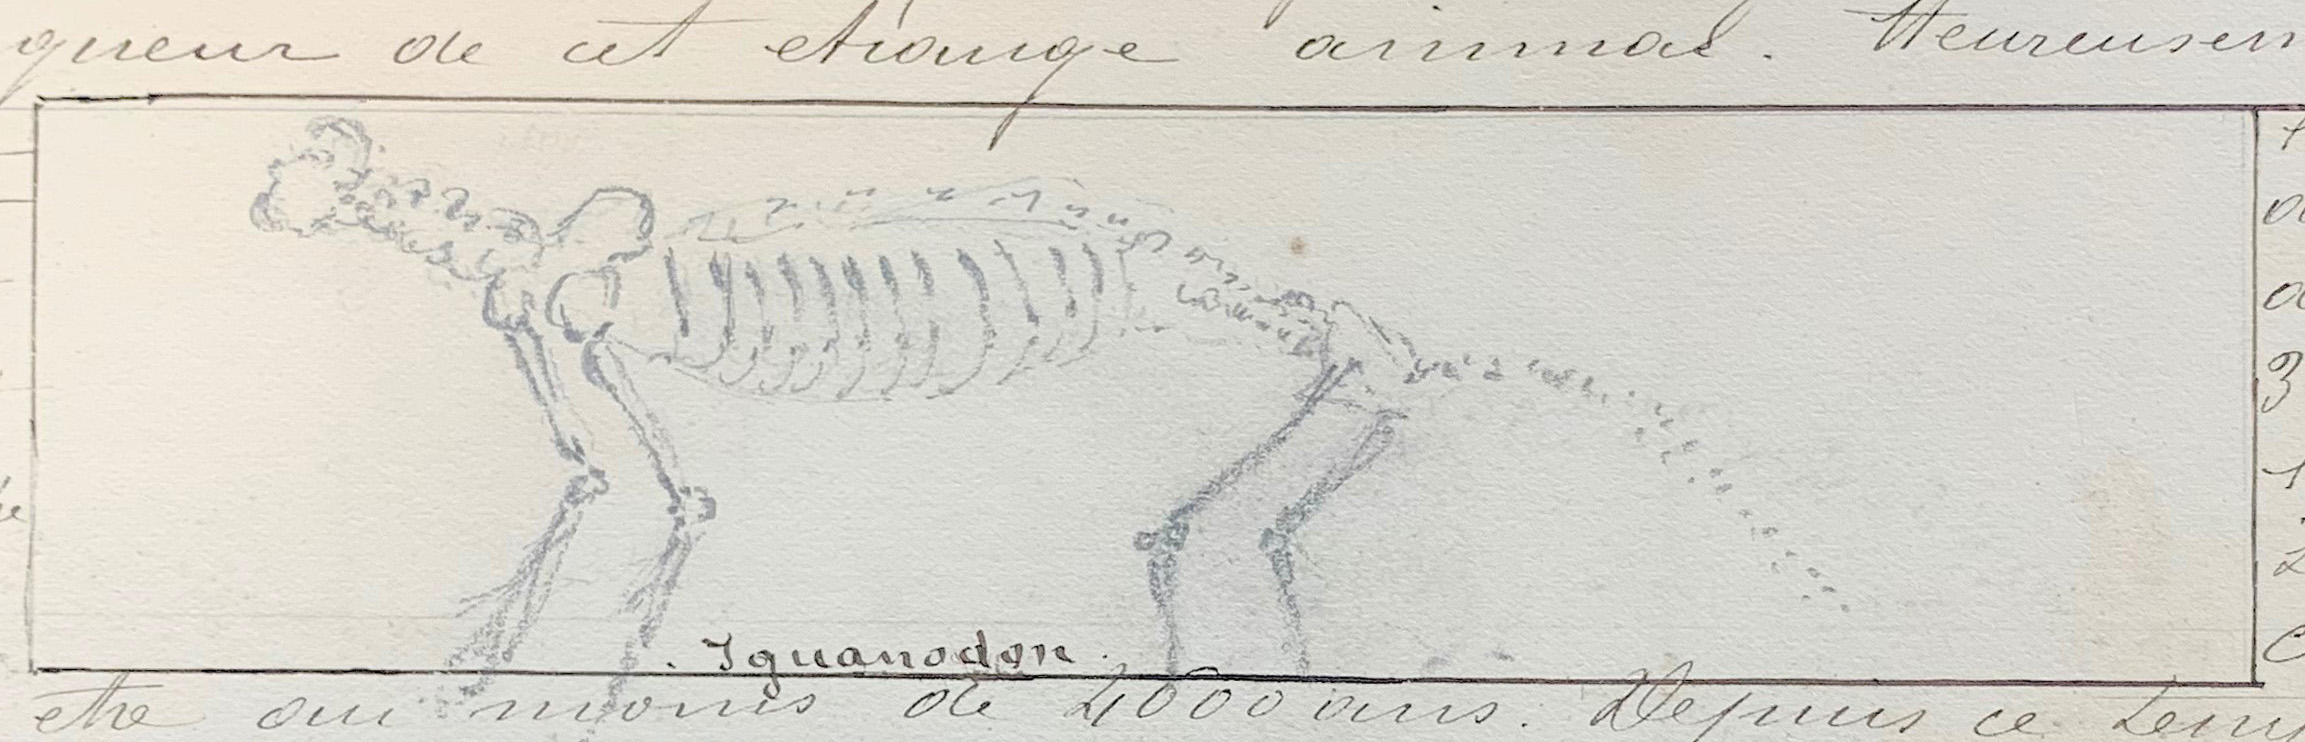 gueur de cet étrange animal. Heureusem
. Iguanodon.
être au moins de 4000 ans. Depuis ce temp